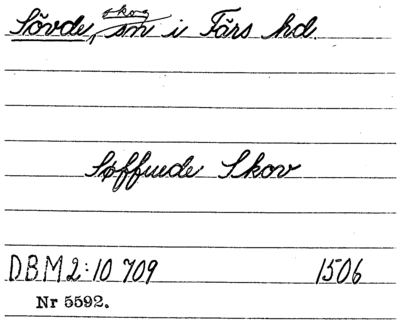 Sövde, skog sn i Färs hd.
Søffuede Skov
DBM2:10 709 1506
Nr 5592.